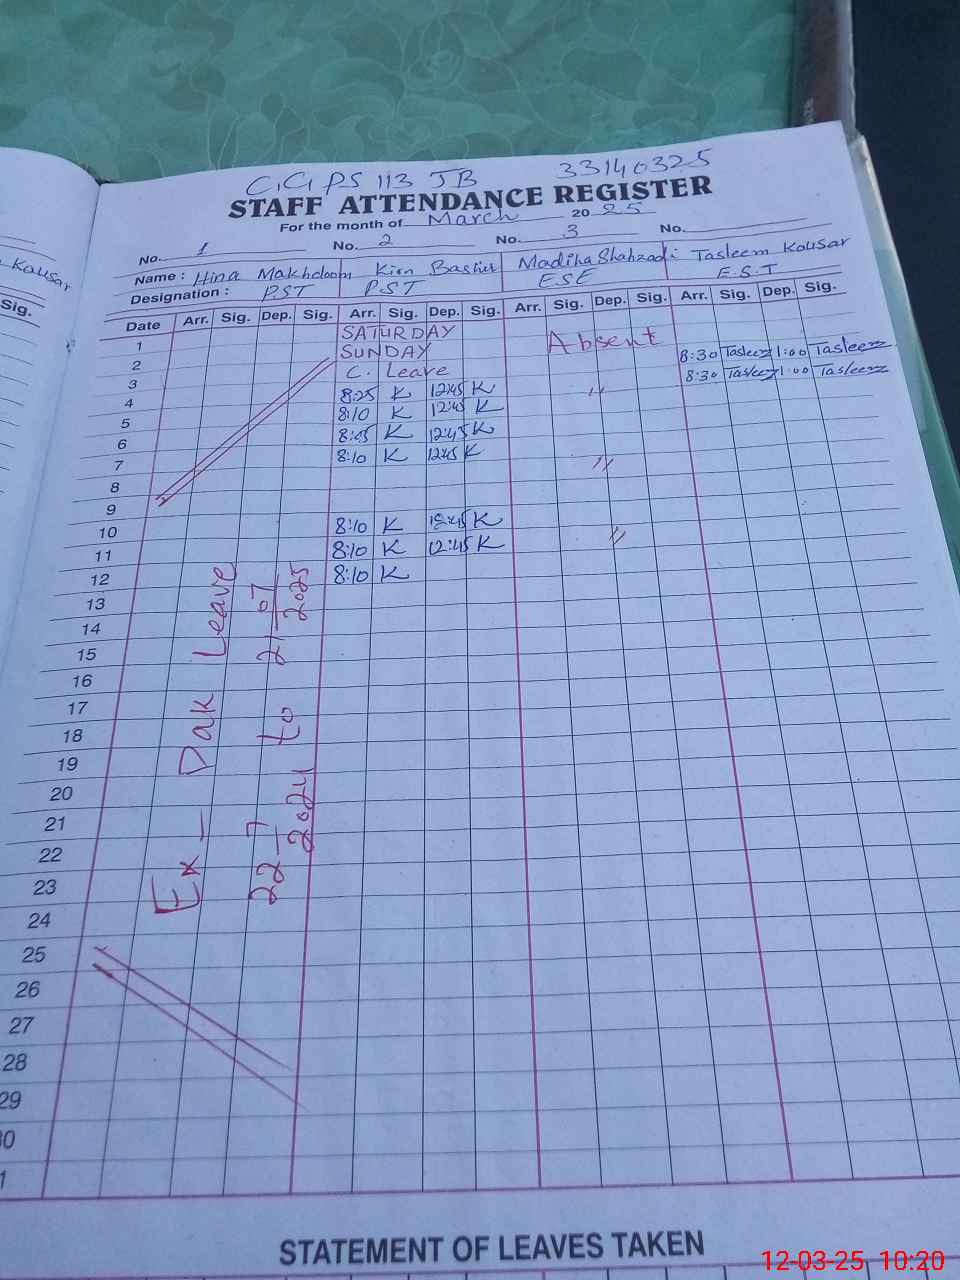 Kousar
Sig.
C,G PS 113 JB 33140325
STAFF ATTENDANCE REGISTER
For the month of March 2025
No. 1 No. 2 No. 3 No.
Name : Hina Makhdoom Kirn Bashir Madiha Shahzadi Tasleem Kousar
Designation : PST PST ESE E.S.T
Date Arr. Sig. Dep. Sig. Arr. Sig. Dep. Sig. Arr. Sig. Dep. Sig. Arr. Sig. Dep. Sig.
1 SATURDAY
2 SUNDAY Absent 8:30 Tasleem 1:00 Tasleem
3 C. Leave 8:30 Tasleem 1:00 Tasleem
4 8:25 K 12:45 K "
5 8:10 K 12:45 K
6 8:05 K 12:45 K
7 8:10 K 12:45 K "
8
9
10 8:10 K 12:45 K
11 8:10 K 12:45 K "
12 8:10 K
13
14
15
16
17
18
19
20
21
22
23
24
25
26
27
28
29
30
31
Ex_ Pak Leave
22-7 2024 to 21-07 2025
STATEMENT OF LEAVES TAKEN
12-03-25 10:20